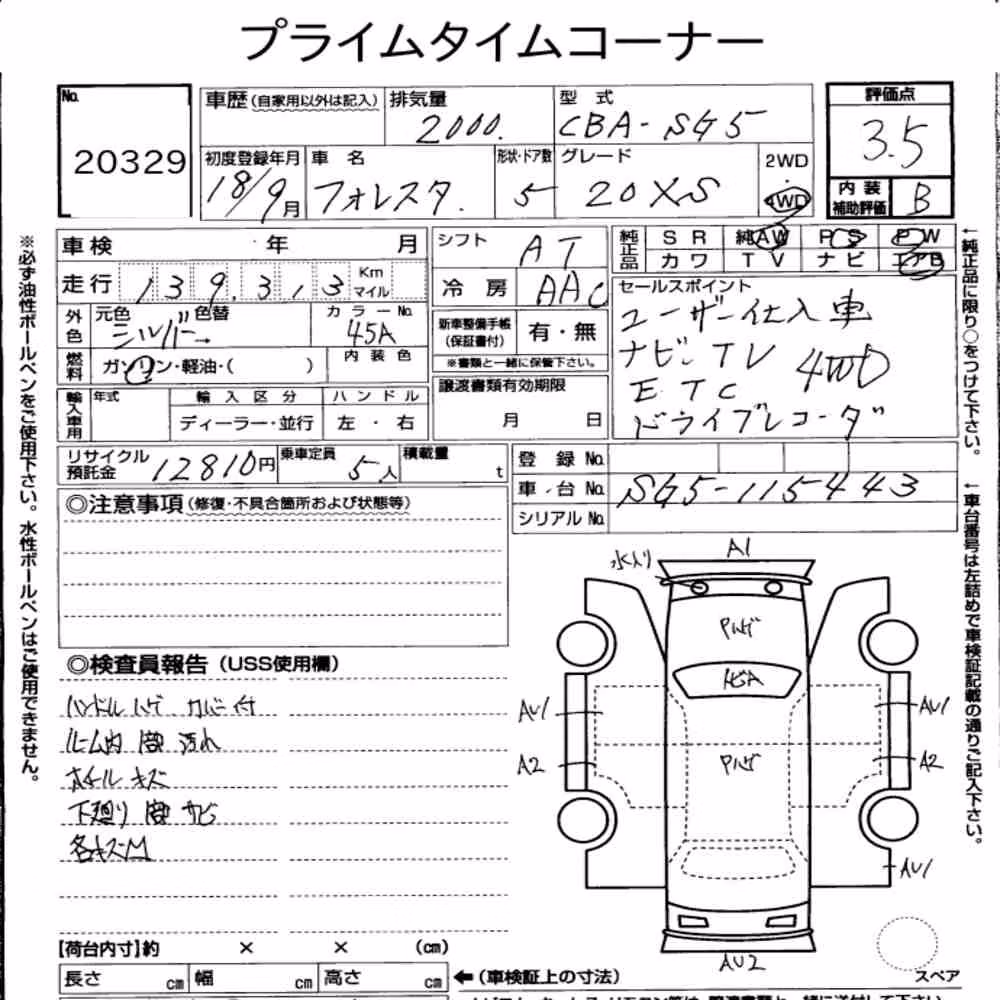 プライムタイムコーナー
No. 20329
車歴(自家用以外は記入) 排気量 2000. 型式 CBA-SG5
評価点 3.5
初度登録年月 18/9月 車名 フォレスタ. 形状・ドア数 5 グレード 20XS 2WD・4WD
内装補助評価 B
車検 ・年 月
シフト AT
純正品 SR 純AW PS PW
カワ TV ナビ エアB
走行 139,313 Km マイル
冷房 AAC
外色 元色 シルバー 色替 カラーNo. 45A
新車整備手帳(保証書付) 有・無
※書類と一緒に保管下さい。
燃料 ガソリン・軽油・( ) 内装色
セールスポイント
ユーザー仕入車
ナビ.TV 4WD
ETC
ドライブレコーダ
譲渡書類有効期限
月 日
輸入車用 年式 輸入区分 ハンドル
ディーラー・並行 左・右
リサイクル預託金 12810円 乗車定員 5人 積載量 t
登録No.
車台No. SG5-115443
シリアルNo.
※必ず油性ボールペンをご使用下さい。水性ボールペンはご使用できません。
←純正品に限り○をつけて下さい。
←車台番号は左詰めで車検証記載の通りご記入下さい。
◎注意事項(修復・不具合箇所および状態等)
◎検査員報告(USS使用欄)
ハンドルハゲ カバー付
ルーム内 汚れ
ホイールキズ
下廻り サビ
各キズM
水入り A1
Pハゲ
AU1 AU1
A2 Pハゲ A2
AU1
AU2
スペア
【荷台内寸】約 × × (cm)
長さ cm 幅 cm 高さ cm ←(車検証上の寸法)